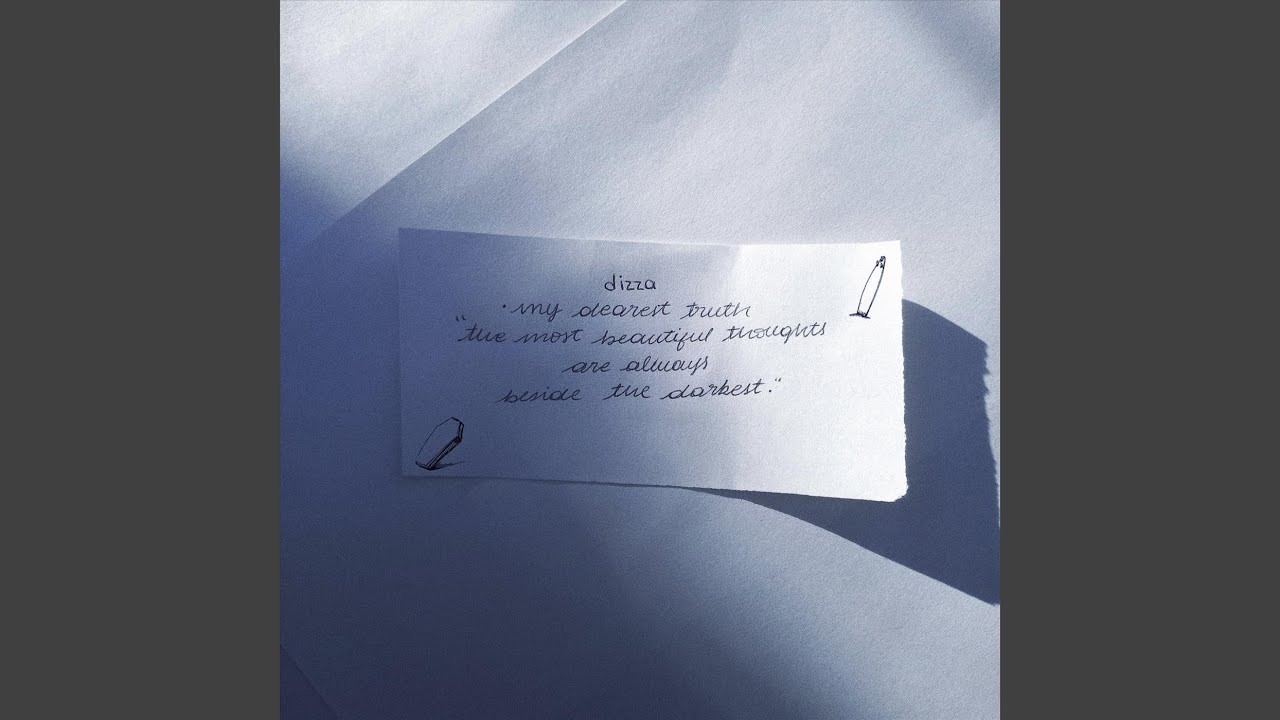 dizza
· my dearest truth
“the most beautiful thoughts
are always
beside the darkest.“